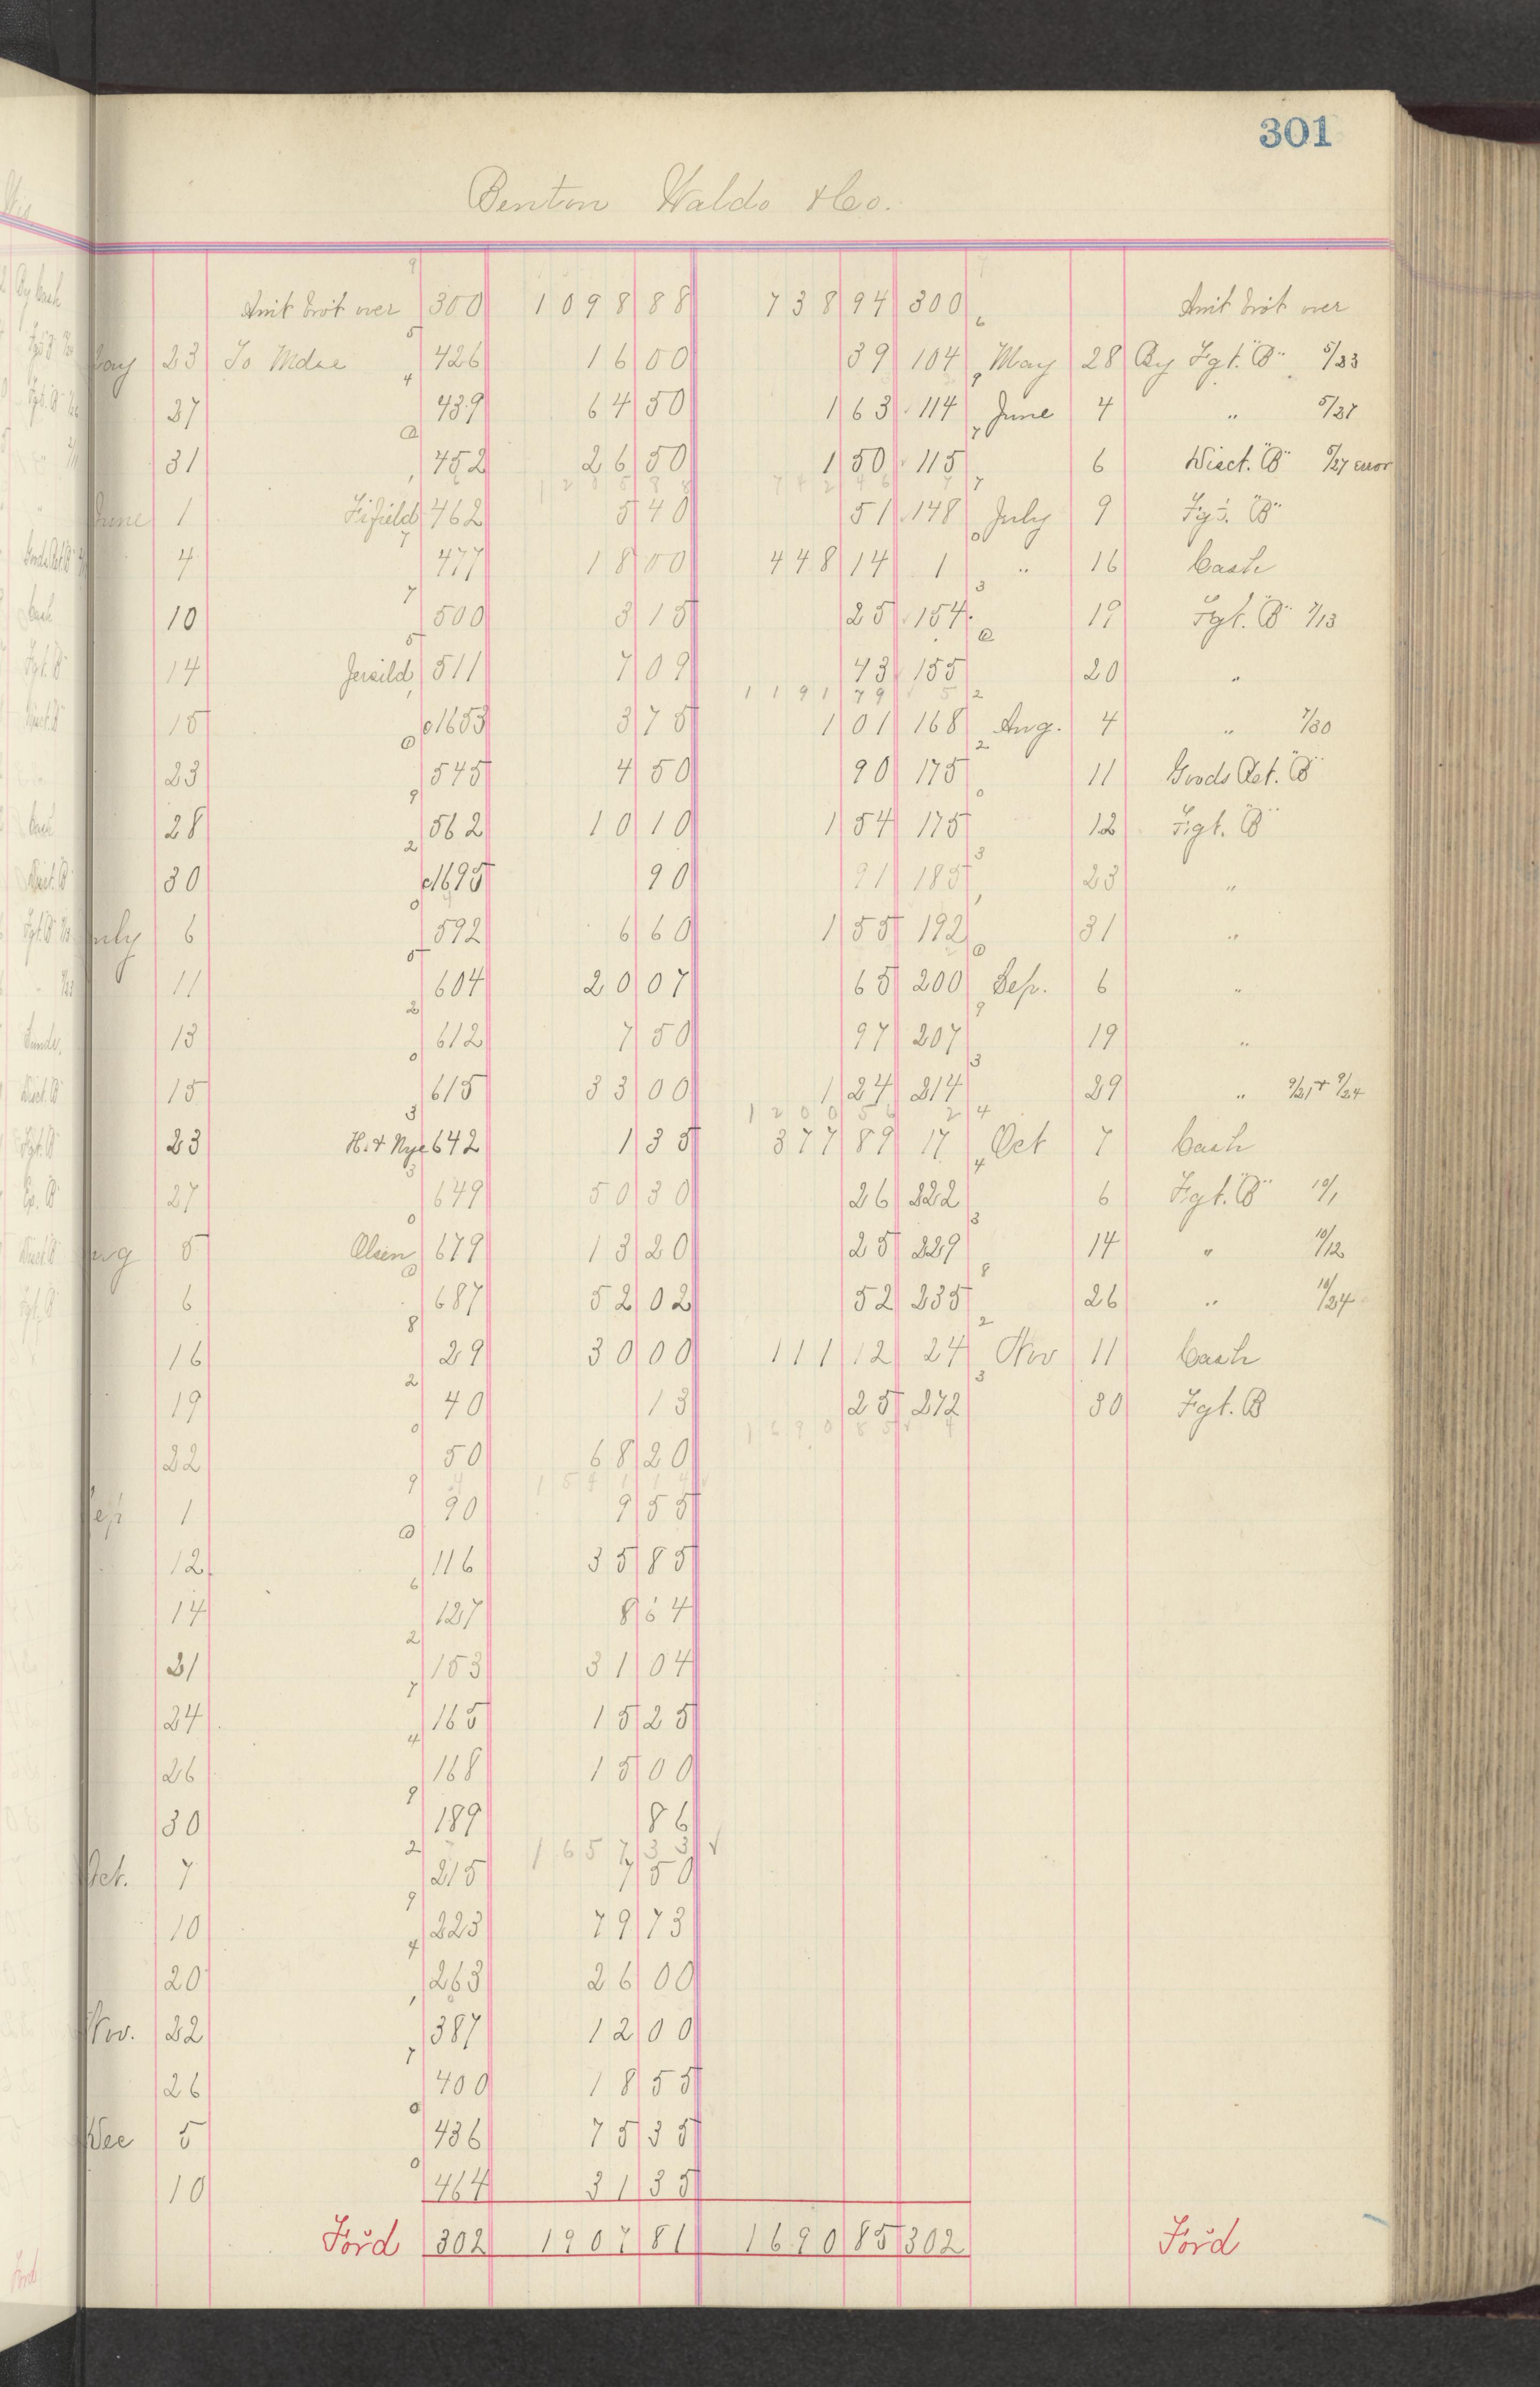 301
Benton Waldo & Co.
Amt brôt over 300 1098 88 738 94 300 Amt brôt over
May 23 To Mdse 426 16 00 39 104 May 28 By Fgt. "B" 5/23
27 439 64 50 1 63 114 June 4 " 5/27
31 452 26 50 1 50 115 6 Disct. "B" 5/27 error
June 1 Fifield 462 5 40 51 148 July 9 Fgt. "B"
4 477 18 00 448 14 1 " 16 Cash
10 500 3 15 25 154 19 Fgt. "B" 7/13
14 Jersild 511 7 09 43 155 20 "
1191 79
15 c1653 3 75 1 01 168 Aug. 4 " 7/30
23 545 4 50 90 175 11 Goods Ret. "B"
28 562 10 10 1 54 175 12 Frgt. "B"
30 c1695 90 91 185 23 "
July 6 592 6 60 1 55 192 31 "
11 604 20 07 65 200 Sep. 6 "
13 612 7 50 97 207 19 "
15 615 33 00 1 24 214 29 " 9/21 + 9/24
1200 56
23 H. & Nye 642 1 35 377 89 17 Oct 7 Cash
27 649 50 30 26 222 6 Fgt. "B" 10/1
Aug 5 Olsen 679 13 20 25 229 14 " 10/12
6 687 52 02 52 235 26 " 10/24
16 29 30 00 111 12 24 Nov 11 Cash
19 40 13 25 272 30 Fgt. B
1690 85
22 50 68 20
Sep 1 90 9 55
12 116 35 85
14 127 8 64
21 153 31 04
24 165 15 25
26 168 15 00
30 189 86
1657 33 √
Oct. 7 215 7 50
10 223 79 73
20 263 26 00
Nov. 22 387 12 00
26 400 18 55
Dec 5 436 75 35
10 464 31 35
Förd 302 1907 81 1690 85 302 Förd